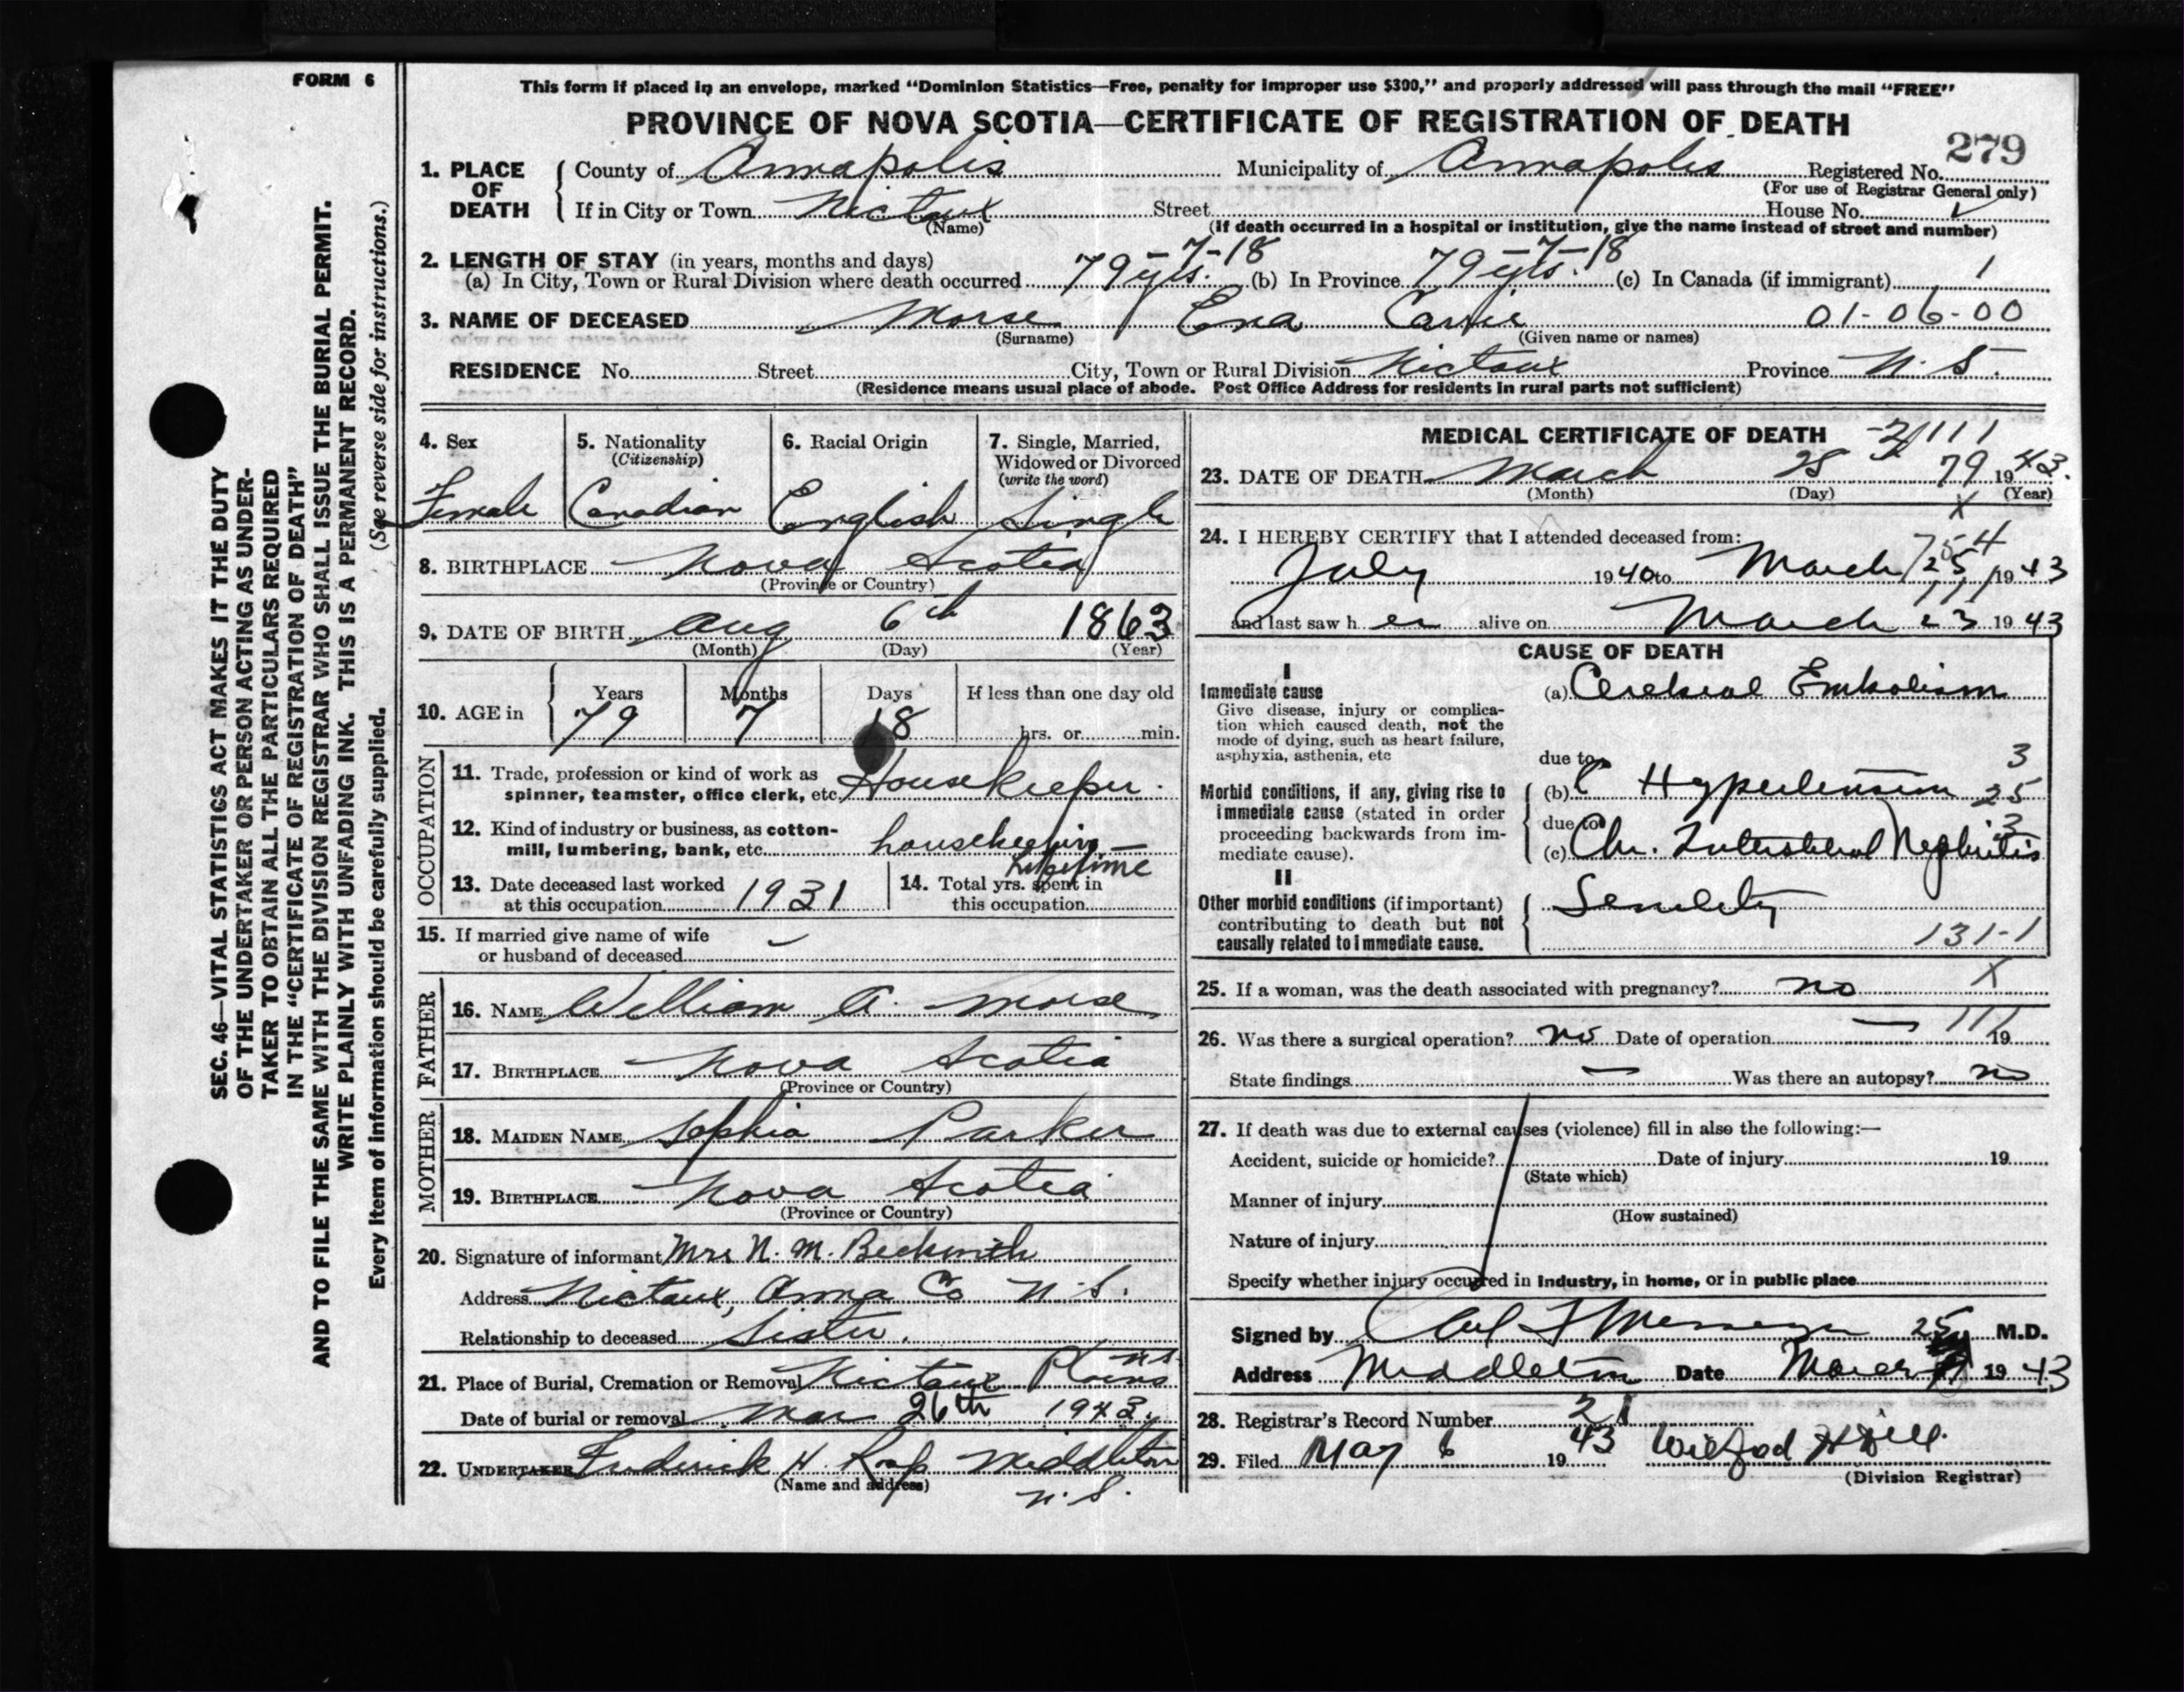 FORM 6
This form if placed in an envelope, marked "Dominion Statistics—Free, penalty for improper use $300," and properly addressed will pass through the mail "FREE"
PROVINCE OF NOVA SCOTIA—CERTIFICATE OF REGISTRATION OF DEATH
279
1. PLACE OF DEATH County of Annapolis Municipality of Annapolis Registered No.
(For use of Registrar General only)
If in City or Town Nictaux Street House No.
(Name) (If death occurred in a hospital or institution, give the name instead of street and number)
2. LENGTH OF STAY (in years, months and days)
(a) In City, Town or Rural Division where death occurred 79 yrs. -7-18 (b) In Province 79 yrs. -7-18 (c) In Canada (if immigrant) 1
3. NAME OF DECEASED Morse Carrie 01-06-00
(Surname) (Given name or names)
RESIDENCE No. Street City, Town or Rural Division Nictaux Province N.S.
(Residence means usual place of abode. Post Office Address for residents in rural parts not sufficient)
4. Sex
Female
5. Nationality
(Citizenship)
Canadian
6. Racial Origin
English
7. Single, Married,
Widowed or Divorced
(write the word)
Single
8. BIRTHPLACE Nova Scotia
(Province or Country)
9. DATE OF BIRTH Aug 6th 1863
(Month) (Day) (Year)
10. AGE in Years Months Days If less than one day old
79 7 18 hrs. or min.
OCCUPATION
11. Trade, profession or kind of work as
spinner, teamster, office clerk, etc. Housekeeper.
12. Kind of industry or business, as cotton-
mill, lumbering, bank, etc. housekeeping
13. Date deceased last worked
at this occupation 1931
14. Total yrs. spent in
this occupation Lifetime
15. If married give name of wife
or husband of deceased —
FATHER
16. NAME William A. Morse
17. BIRTHPLACE Nova Scotia
(Province or Country)
MOTHER
18. MAIDEN NAME Sophia Parker
19. BIRTHPLACE Nova Scotia
(Province or Country)
20. Signature of informant Mrs N. M. Beckwith
Address Nictaux, Anna Co N.S.
Relationship to deceased Sister.
21. Place of Burial, Cremation or Removal Nictaux Plains N.S.
Date of burial or removal Mar 26th 1943
22. UNDERTAKER Frederick H. Roop Middleton
(Name and address) N.S.
MEDICAL CERTIFICATE OF DEATH
23. DATE OF DEATH March 79 1943.
(Month) (Day) (Year)
24. I HEREBY CERTIFY that I attended deceased from:
July 1940 to March 25 1943
and last saw h er alive on March 23 1943
CAUSE OF DEATH
I
Immediate cause
Give disease, injury or complica-
tion which caused death, not the
mode of dying, such as heart failure,
asphyxia, asthenia, etc
(a) Cerebral Embolism
due to 3
Morbid conditions, if any, giving rise to
immediate cause (stated in order
proceeding backwards from im-
mediate cause).
(b) Hypertension 25
due to 3
(c) Chr. Interstitial Nephritis
II
Other morbid conditions (if important)
contributing to death but not
causally related to immediate cause.
Senility
131-1
25. If a woman, was the death associated with pregnancy? no X
26. Was there a surgical operation? no Date of operation — 19
State findings — Was there an autopsy? no
27. If death was due to external causes (violence) fill in also the following:—
Accident, suicide or homicide? Date of injury 19
(State which)
Manner of injury
(How sustained)
Nature of injury
Specify whether injury occurred in industry, in home, or in public place
Signed by M.D.
Address Middleton Date March 25 1943
28. Registrar's Record Number 21
29. Filed May 6 1943 Wilfred
(Division Registrar)
SEC. 46—VITAL STATISTICS ACT MAKES IT THE DUTY
OF THE UNDERTAKER OR PERSON ACTING AS UNDER-
TAKER TO OBTAIN ALL THE PARTICULARS REQUIRED
IN THE "CERTIFICATE OF REGISTRATION OF DEATH"
AND TO FILE THE SAME WITH THE DIVISION REGISTRAR WHO SHALL ISSUE THE BURIAL PERMIT.
WRITE PLAINLY WITH UNFADING INK. THIS IS A PERMANENT RECORD.
Every item of information should be carefully supplied. (See reverse side for instructions.)